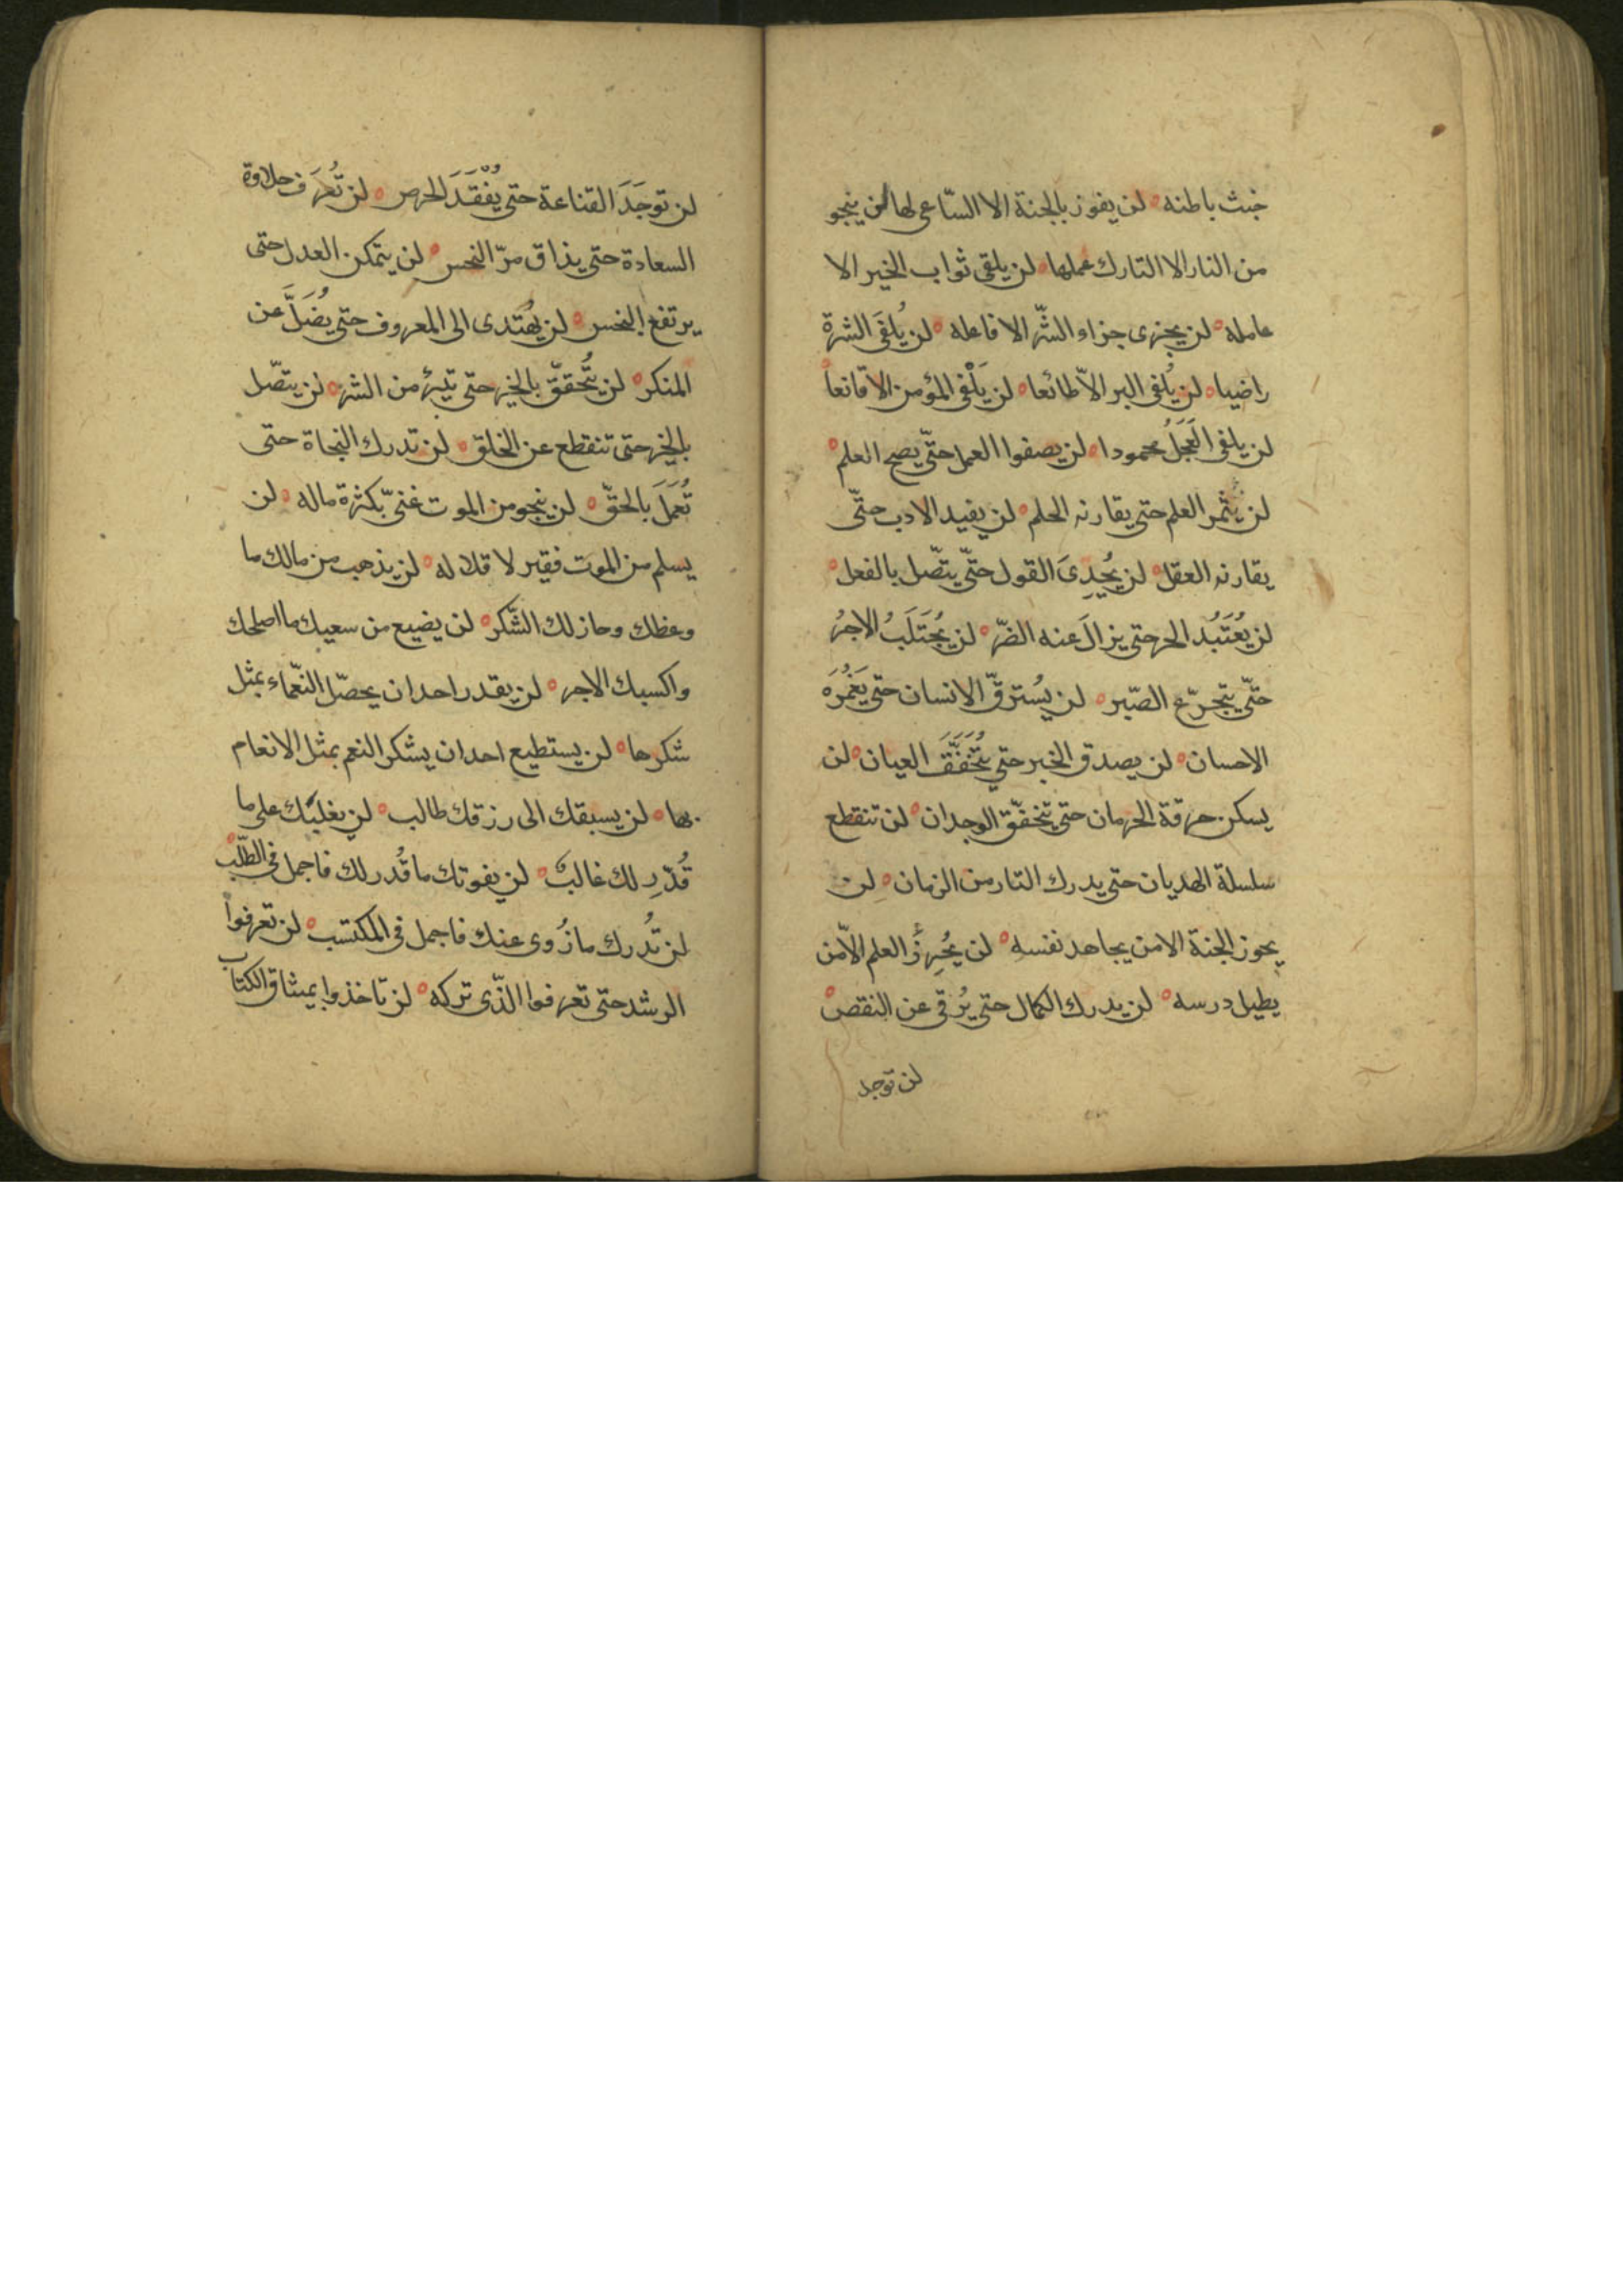 خبث باطنه لن يفوز بالجنة الا السّاعى لها لن ينجو
من النار الا التارك عملها لن يلقى ثواب الخير الا
عامله لن يجزى جزاء الشّر الا فاعله لن يُلقَى الشره
راضيا لن يُلفى البر الاّ طائعا لن يَلْفى المؤمن الا قانعاً
لن يلفى العَجَلُ محمودا لن يصفوا العمل حتّى يصح العلم
لن يثمر العلم حتى يقارنه الحلم لن يفيد الادب حتّى
يقارنه العقل لن يُجدِىَ القول حتّى يتّصل بالفعل
لن يُعْتَبُد الحر حتى يزالَ عنه الضّر لن يُجْتَلَبُ الاجرُ
حتّى يتجرّع الصّبر لن يُسترقّ الانسان حتى يَغمُرَه
الاحسان لن يصدق الخبر حتى يُتَحَقَّقَ العيان لن
يسكن حرقة الحرمان حتى يتحقّق الوجدان لن تنقطع
سلسلة الهديان حتى يدرك الثار من الزمان لن
يحوز الجنة الا من يجاهد نفسه لن يُحرِزُ العلم الاّ من
يطيل درسه لن يدرك الكمال حتى يُرقى عن النقص
لن توجد
لن توجَدَ القناعة حتى يُفْقَدَ الحرص لن تُعرَف حلاوة
السعادة حتى يذاق مرّ النحس لن يتمكن العدل حتى
يرتفع البخس لن يُهتدى الى المعروف حتى يُضَلَّ عن
المنكر لن يتُحققّ بالخير حتى تبرؤ من الشر لن يتصّل
بالخير حتى تنقطع عن الخلق لن تدرك النجاة حتى
تُعمَلَ بالحقّ لن ينجو من الموت غنىّ بكثرة ماله لن
يسلم من الموت فقير لا قلاله لن يذهب من مالك ما
وعظك وحاز لك الشّكر لن يضيع من سعيك ما اصلحك
واكسبك الاجر لن يقدر احد ان يحصّل النعّماء بمثل
شكرها لن يستطيع احد ان يشكر النعم بمثل الانعام
بها لن يسبقك الى رزقك طالب لن يغلبك على ما
قُدّرِ لك غالب لن يفوتك ما قُدر لك فاجمل فى الطلّب
لن تُدرك ما زُوى عنك فاجمل فى المكتسب لن تعرفوا
الرشد حتى تعرفوا الذّى تركه لن تاخذوا بميثاق الكتاب